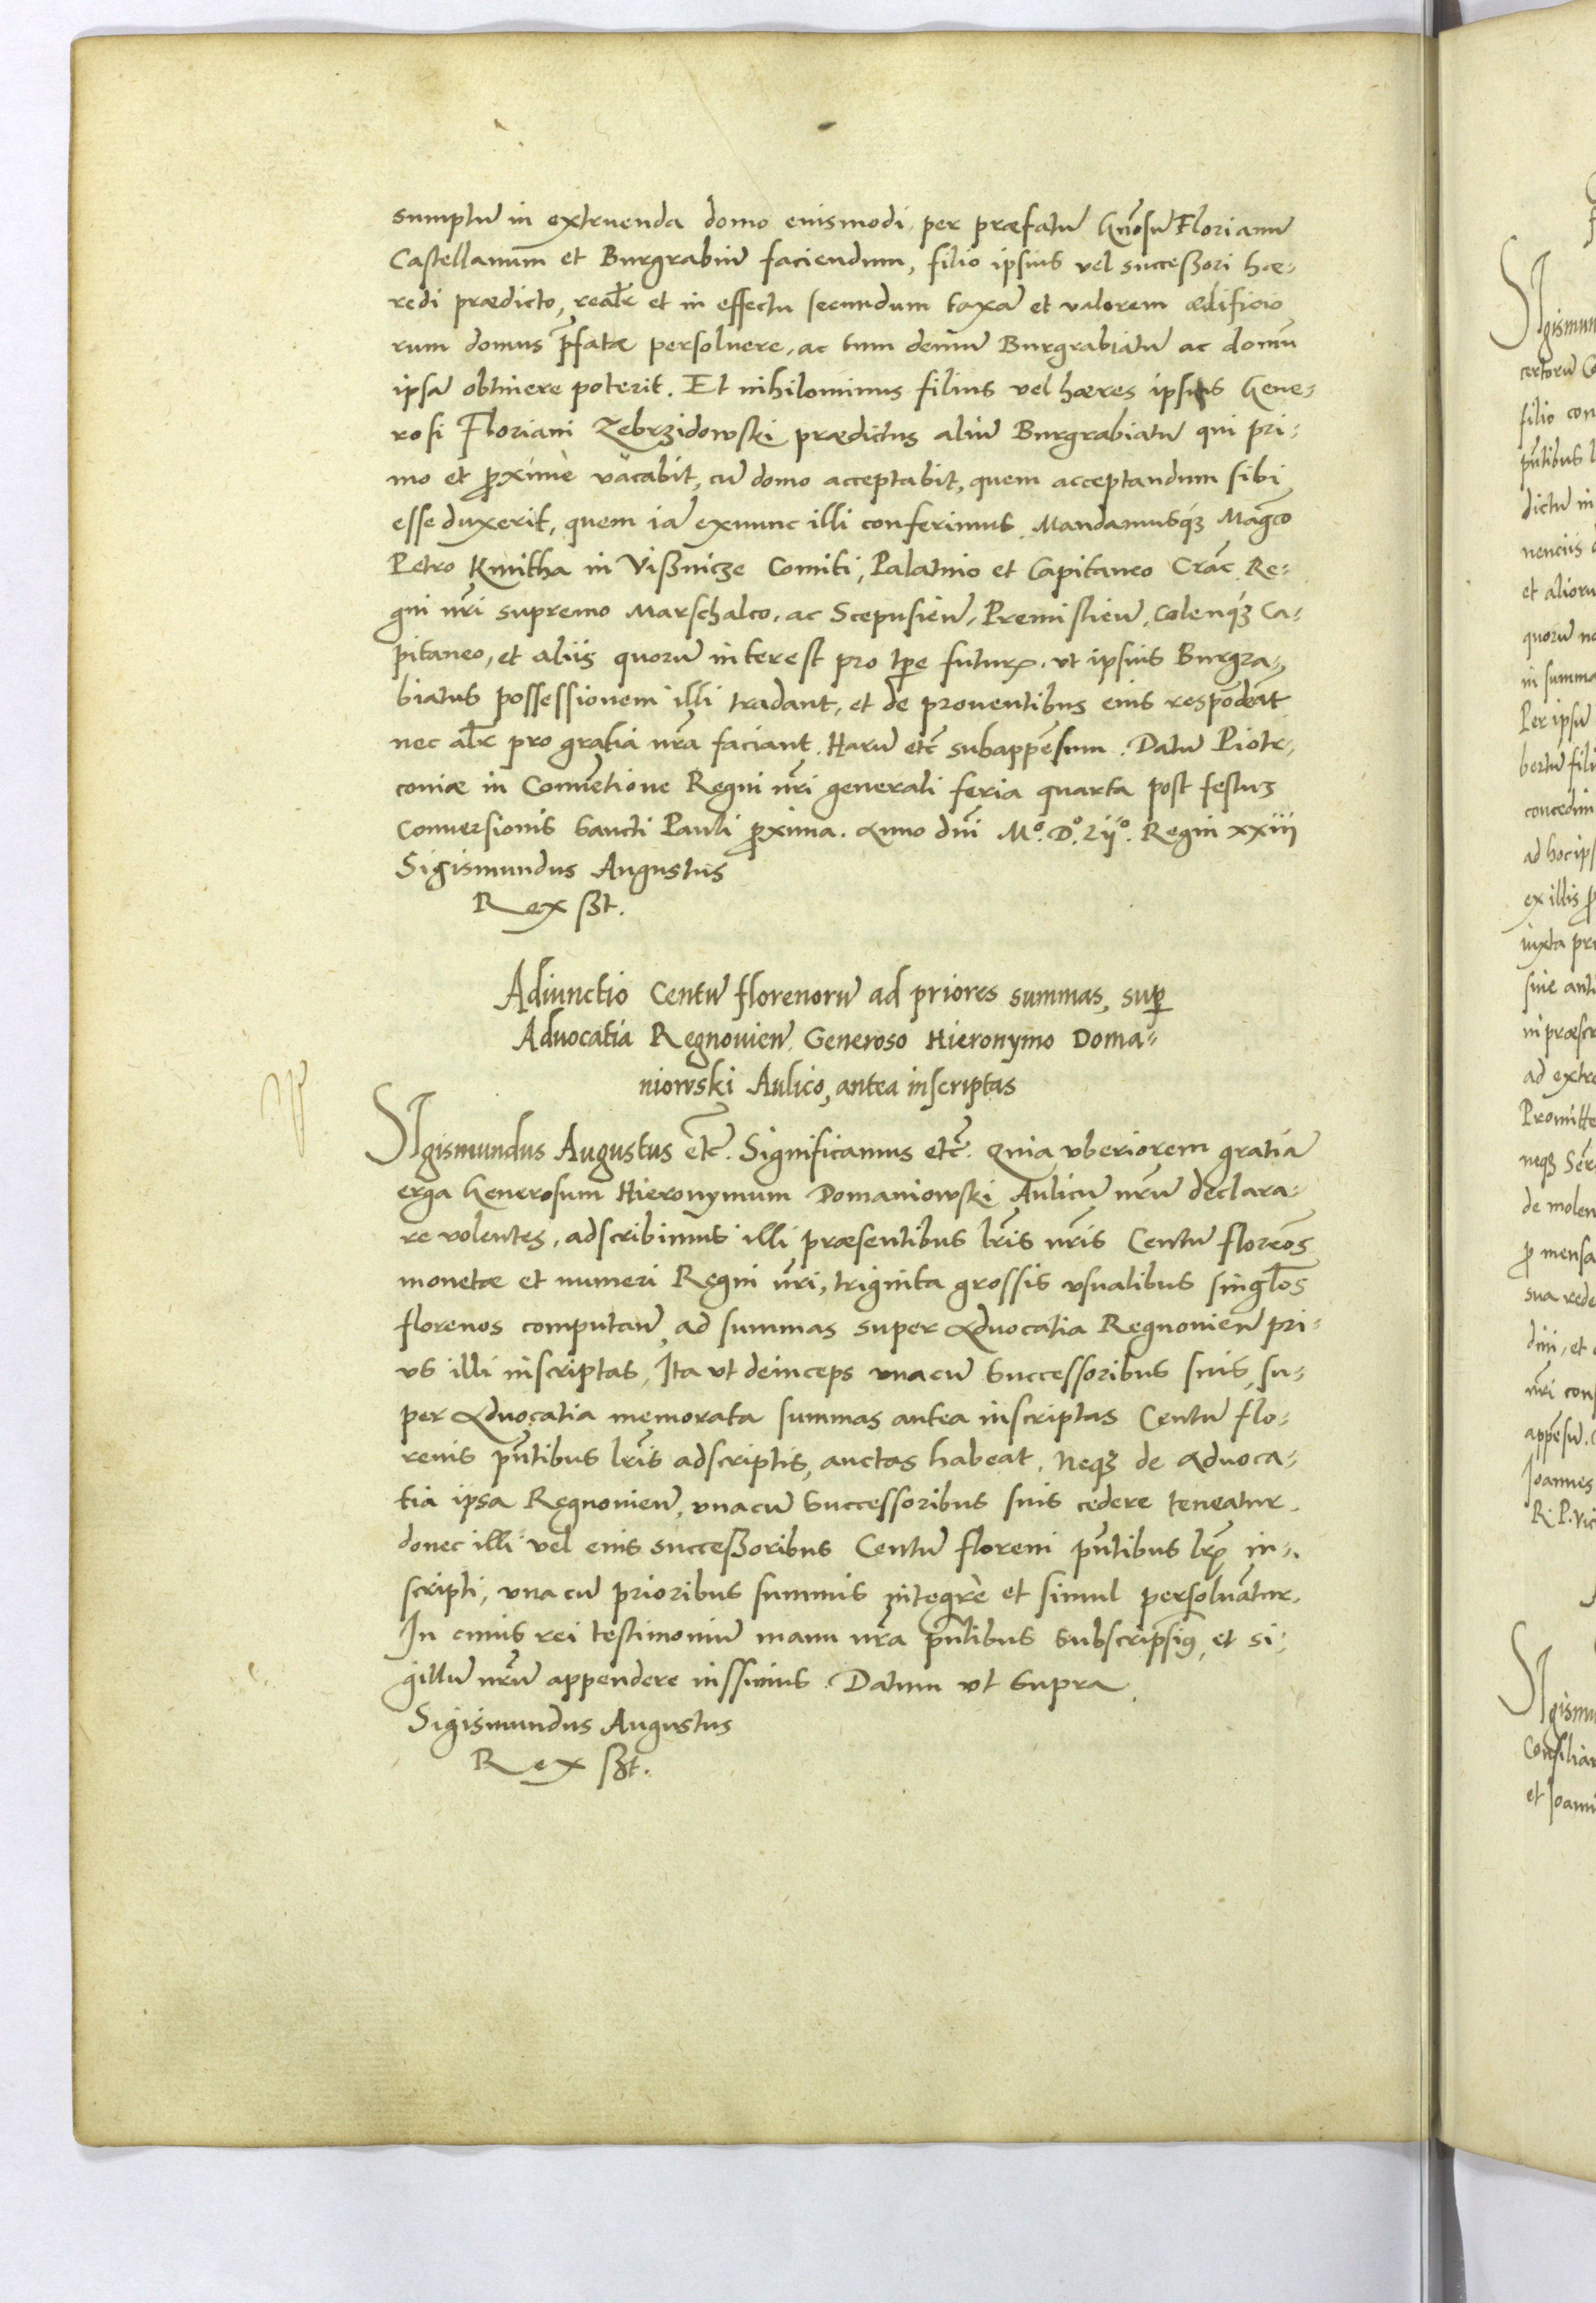 sumptū in extruenda domo euismodi, per præfatū Gn̄osū Florianū
Castellanum et Burgrabiū faciendum, filio ipsius vel successori hæ-
redi prædicto, realr̄ et in effectu secundum taxā et valorem ædificio
rum domus p̄fatæ persoluere, ac tum demū Burgrabiatū ac domū
ipsā obtinere poterit. Et nihilominus filius vel hæres ipsius Gene-
rosi Floriani Zebrzidowski prædictus aliū Burgrabiatū qui pri-
mo et ꝓximè vacabit, cū domo acceptabit, quem acceptandum sibi
esse duxerit, quem iā exnunc illi conferimus. Mandamusqꝫ Mag̃co
Petro Kmitha in Vißnicze Comiti, Palatino et Capitaneo Crac̄. Re-
gni nr̄i supremo Marschalco, ac Scepusien̄, Premislien̄, Colenqꝫ Ca-
pitaneo, et aliis quorū interest pro tp̄e futurꝭ. vt ipsius Burgra-
biatus possessionem illi tradant, et de prouentibus eius respōdeāt
nec alr̄ pro gratia nr̄a faciant. Harū etc̄ subappēsum. Datū Piotr-
coniæ in Conuētione Regni nr̄i generali feria quarta post festuꝫ
Conuersionis Sancti Pauli ꝓxima. Anno dn̄i Mº. Dº. Lijº. Regni xxiij
Sigismundus Augustus
Rex ßt.
Adiunctio Centū florenorū ad priores summas, suꝑ
Aduocatia Regnouien̄. Generoso Hieronymo Doma-
niowski Aulico, antea inscriptas
SIgismundus Augustus etc̄. Significamus etc̄. Quia vberiorem gratiā
erga Generosum Hieronymum Domaniowski Aulicū nr̄ū declara-
re volentes, adscribimus illi præsentibus lr̄is nr̄is Centū floreōs
monetæ et numeri Regni nr̄i, triginta grossis vsualibus singl̄os
florenos computan̄, ad summas super Aduocatia Regnouien̄ pri-
us illi inscriptas, Ita vt deinceps vnacū Successoribus suis, su-
per Aduocatia memorata summas antea inscriptas Centū flo-
renis pn̄tibus lr̄is adscriptis, auctas habeat, Neqꝫ de Aduoca-
tia ipsa Regnouien̄, vnacū Successoribus suis cedere teneatur.
donec illi vel eius successoribus Centū floreni pn̄tibus lrꝭ in-
scripti, vna cū prioribus summis integrè et simul persoluātur.
In cuius rei testimoniū manu nr̄a pn̄tibus subscripsimꝰ, et si-
gillū nr̄ū appendere iussimus. Datum vt supra.
Sigismundus Augustus
Rex ßt.